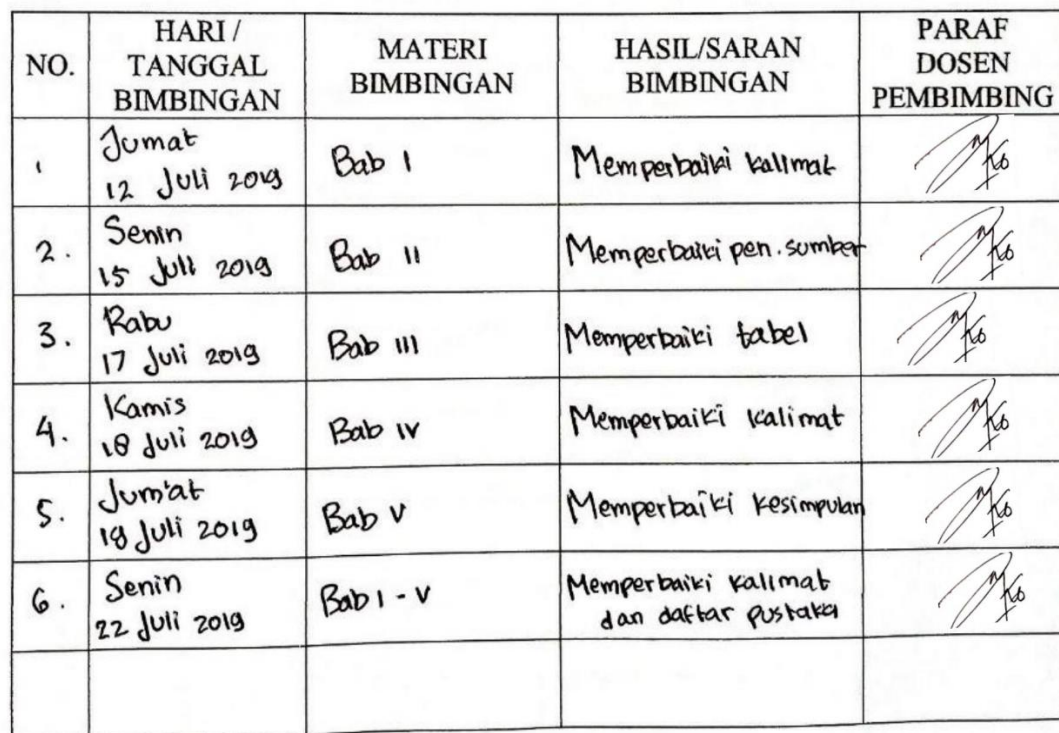 NO.
HARI /
TANGGAL
BIMBINGAN
MATERI
BIMBINGAN
HASIL/SARAN
BIMBINGAN
PARAF
DOSEN
PEMBIMBING
1
Jumat
12 Juli 2019
Bab I
Memperbaiki kalimat
2.
Senin
15 Juli 2019
Bab II
Memperbaiki pen. sumber
3.
Rabu
17 Juli 2019
Bab III
Memperbaiki tabel
4.
Kamis
18 Juli 2019
Bab IV
Memperbaiki kalimat
5.
Jum'at
19 Juli 2019
Bab V
Memperbaiki kesimpulan
6.
Senin
22 Juli 2019
Bab I - V
Memperbaiki kalimat
dan daftar pustaka